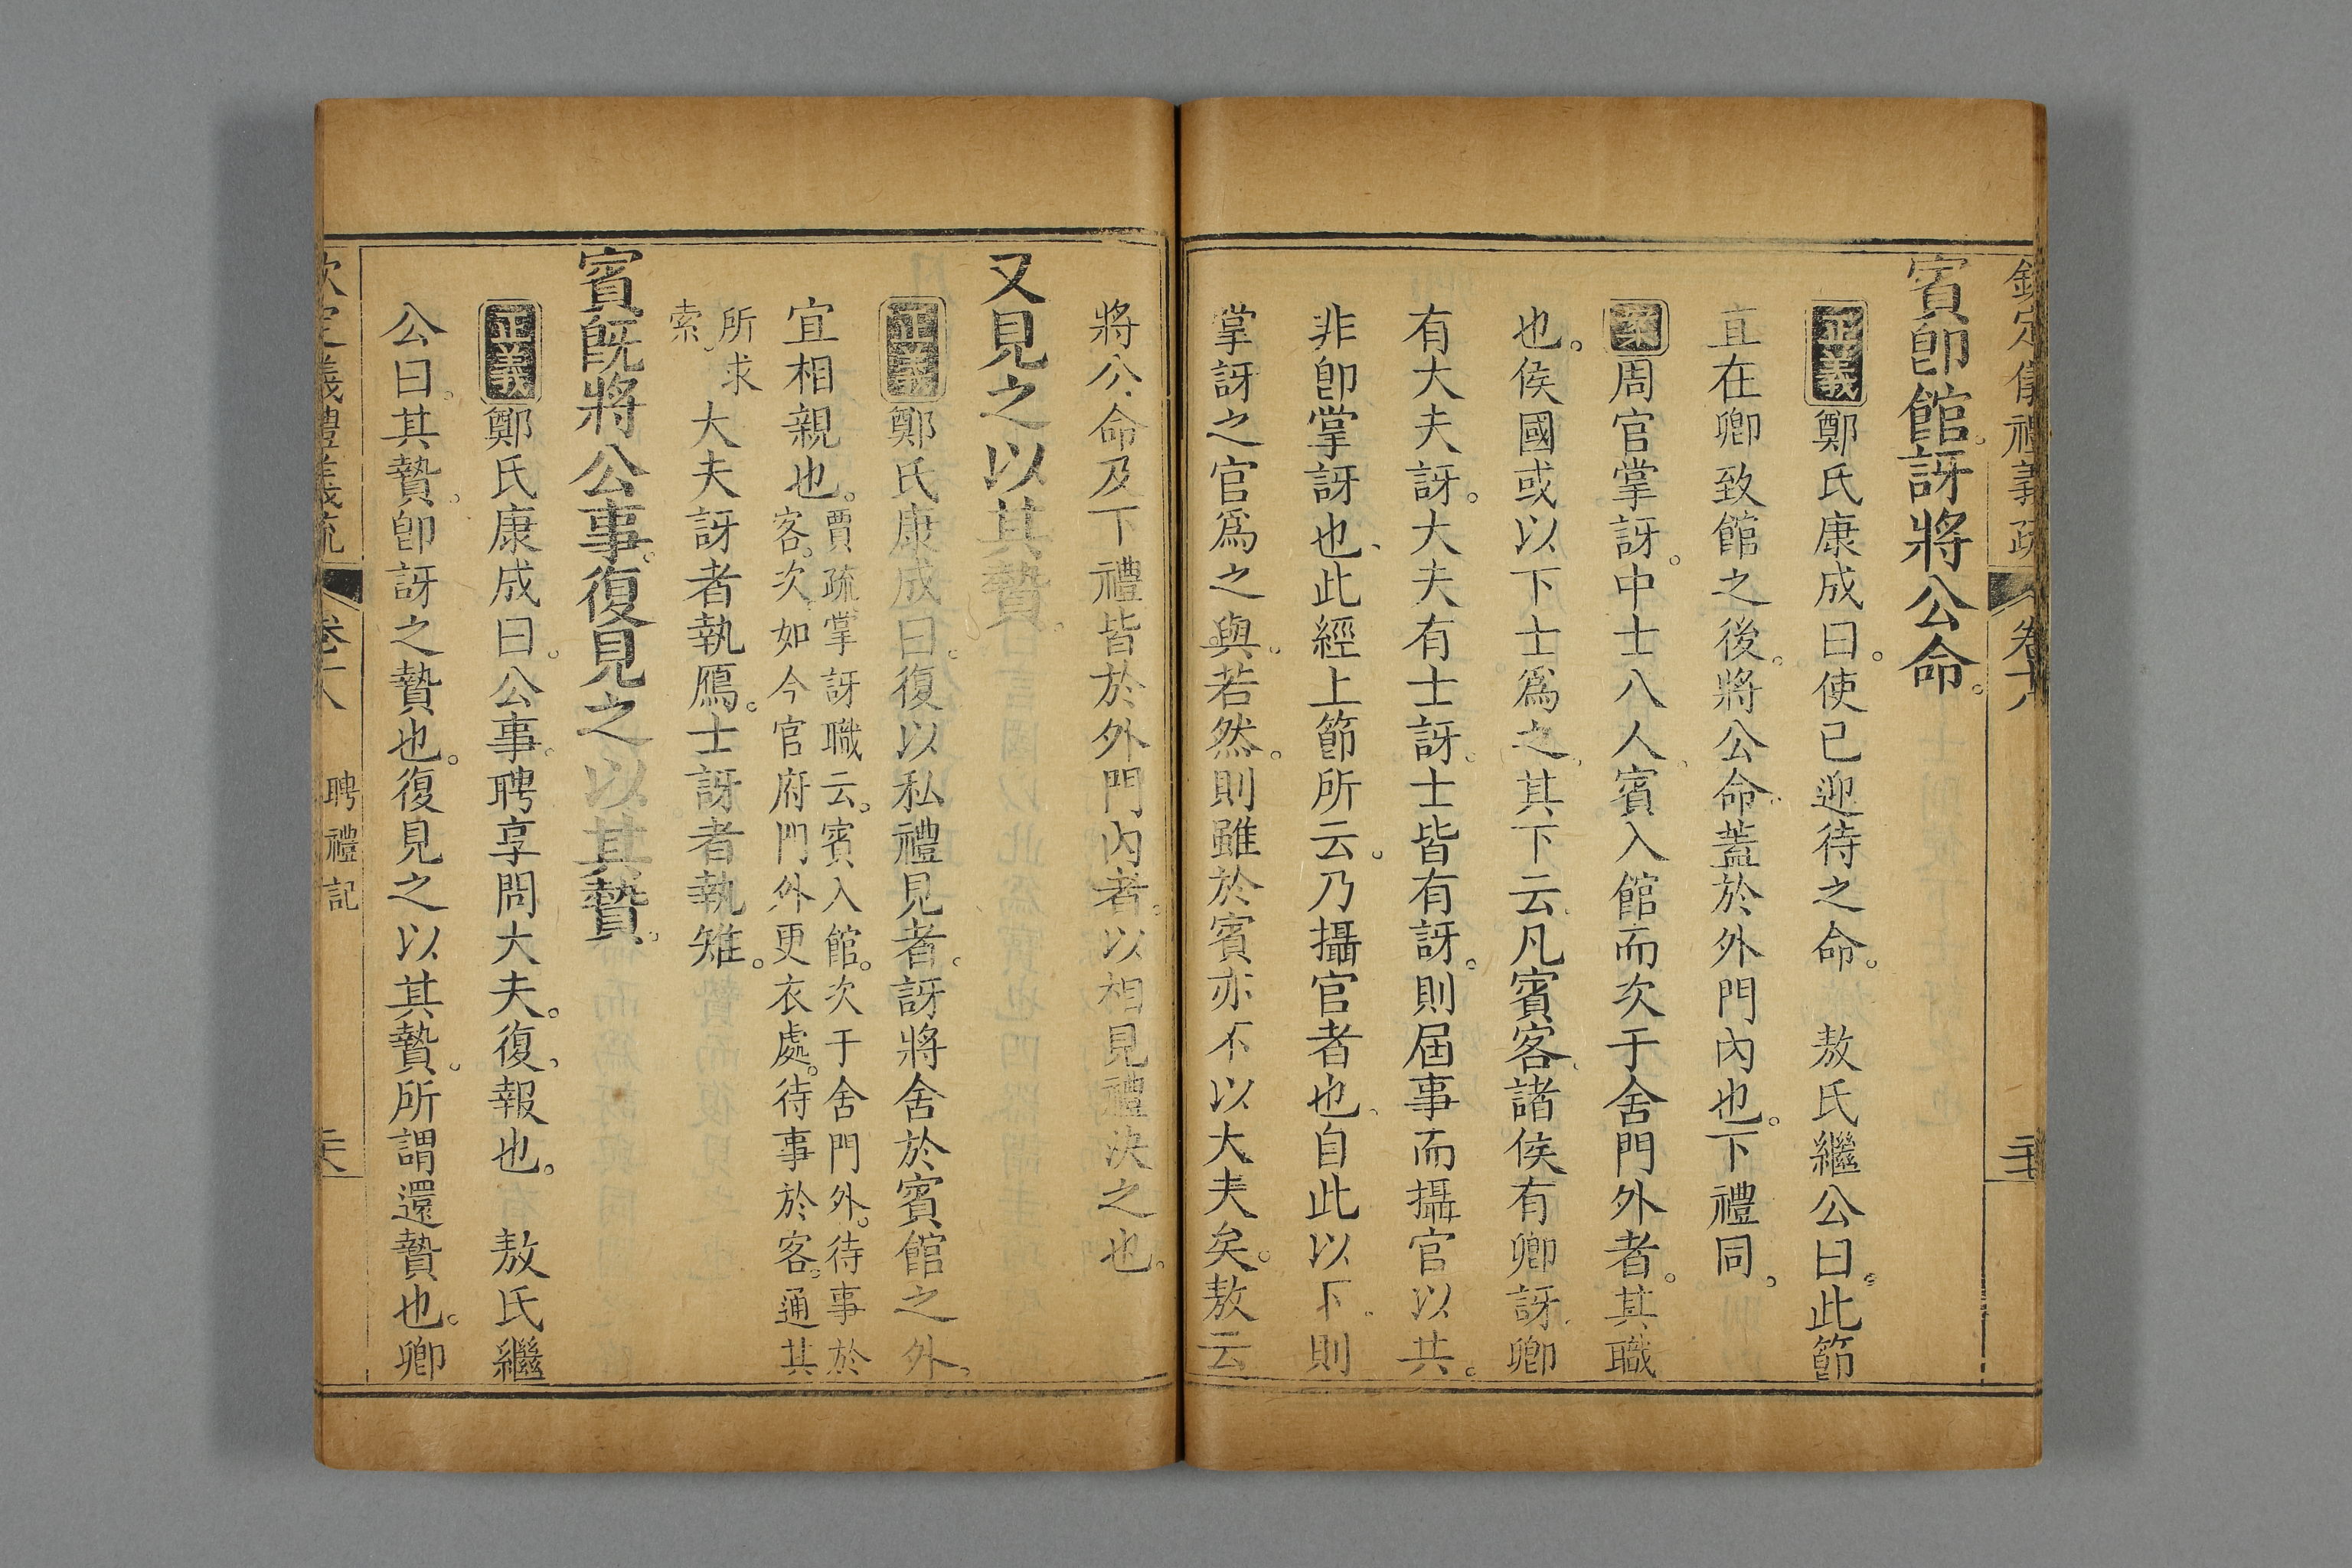 欽定儀禮義疏 卷十八
賓卽館。訝將公命。
正義鄭氏康成曰。使己迎待之命。 敖氏繼公曰。此節
直在卿致館之後。將公命。蓋於外門內也。下禮同。
案周官掌訝。中士八人。賓入館而次于舍門外者。其職
也。侯國或以下士爲之。其下云。凡賓客。諸侯有卿訝。卿
有大夫訝。大夫有士訝。士皆有訝。則屆事而攝官以共。
非卽掌訝也。此經上節所云。乃攝官者也。自此以下。則
掌訝之官爲之與。若然。則雖於賓亦不以大夫矣。敖云
將公命及下禮皆於外門內者。以相見禮決之也。
又見之以其贄。
正義鄭氏康成曰。復以私禮見者。訝將舍於賓館之外。
宜相親也。賈疏掌訝職云。賓入館。次于舍門外。待事於
客。次。如今官府門外更衣處。待事於客。通其
所求
索。
大夫訝者執鴈。士訝者執雉。
賓旣將公事。復見之以其贄。
正義鄭氏康成曰。公事。聘享問大夫。復。報也。 敖氏繼
公曰。其贄。卽訝之贄也。復見之以其贄。所謂還贄也。卿
欽定義禮義疏 卷十八 聘禮記